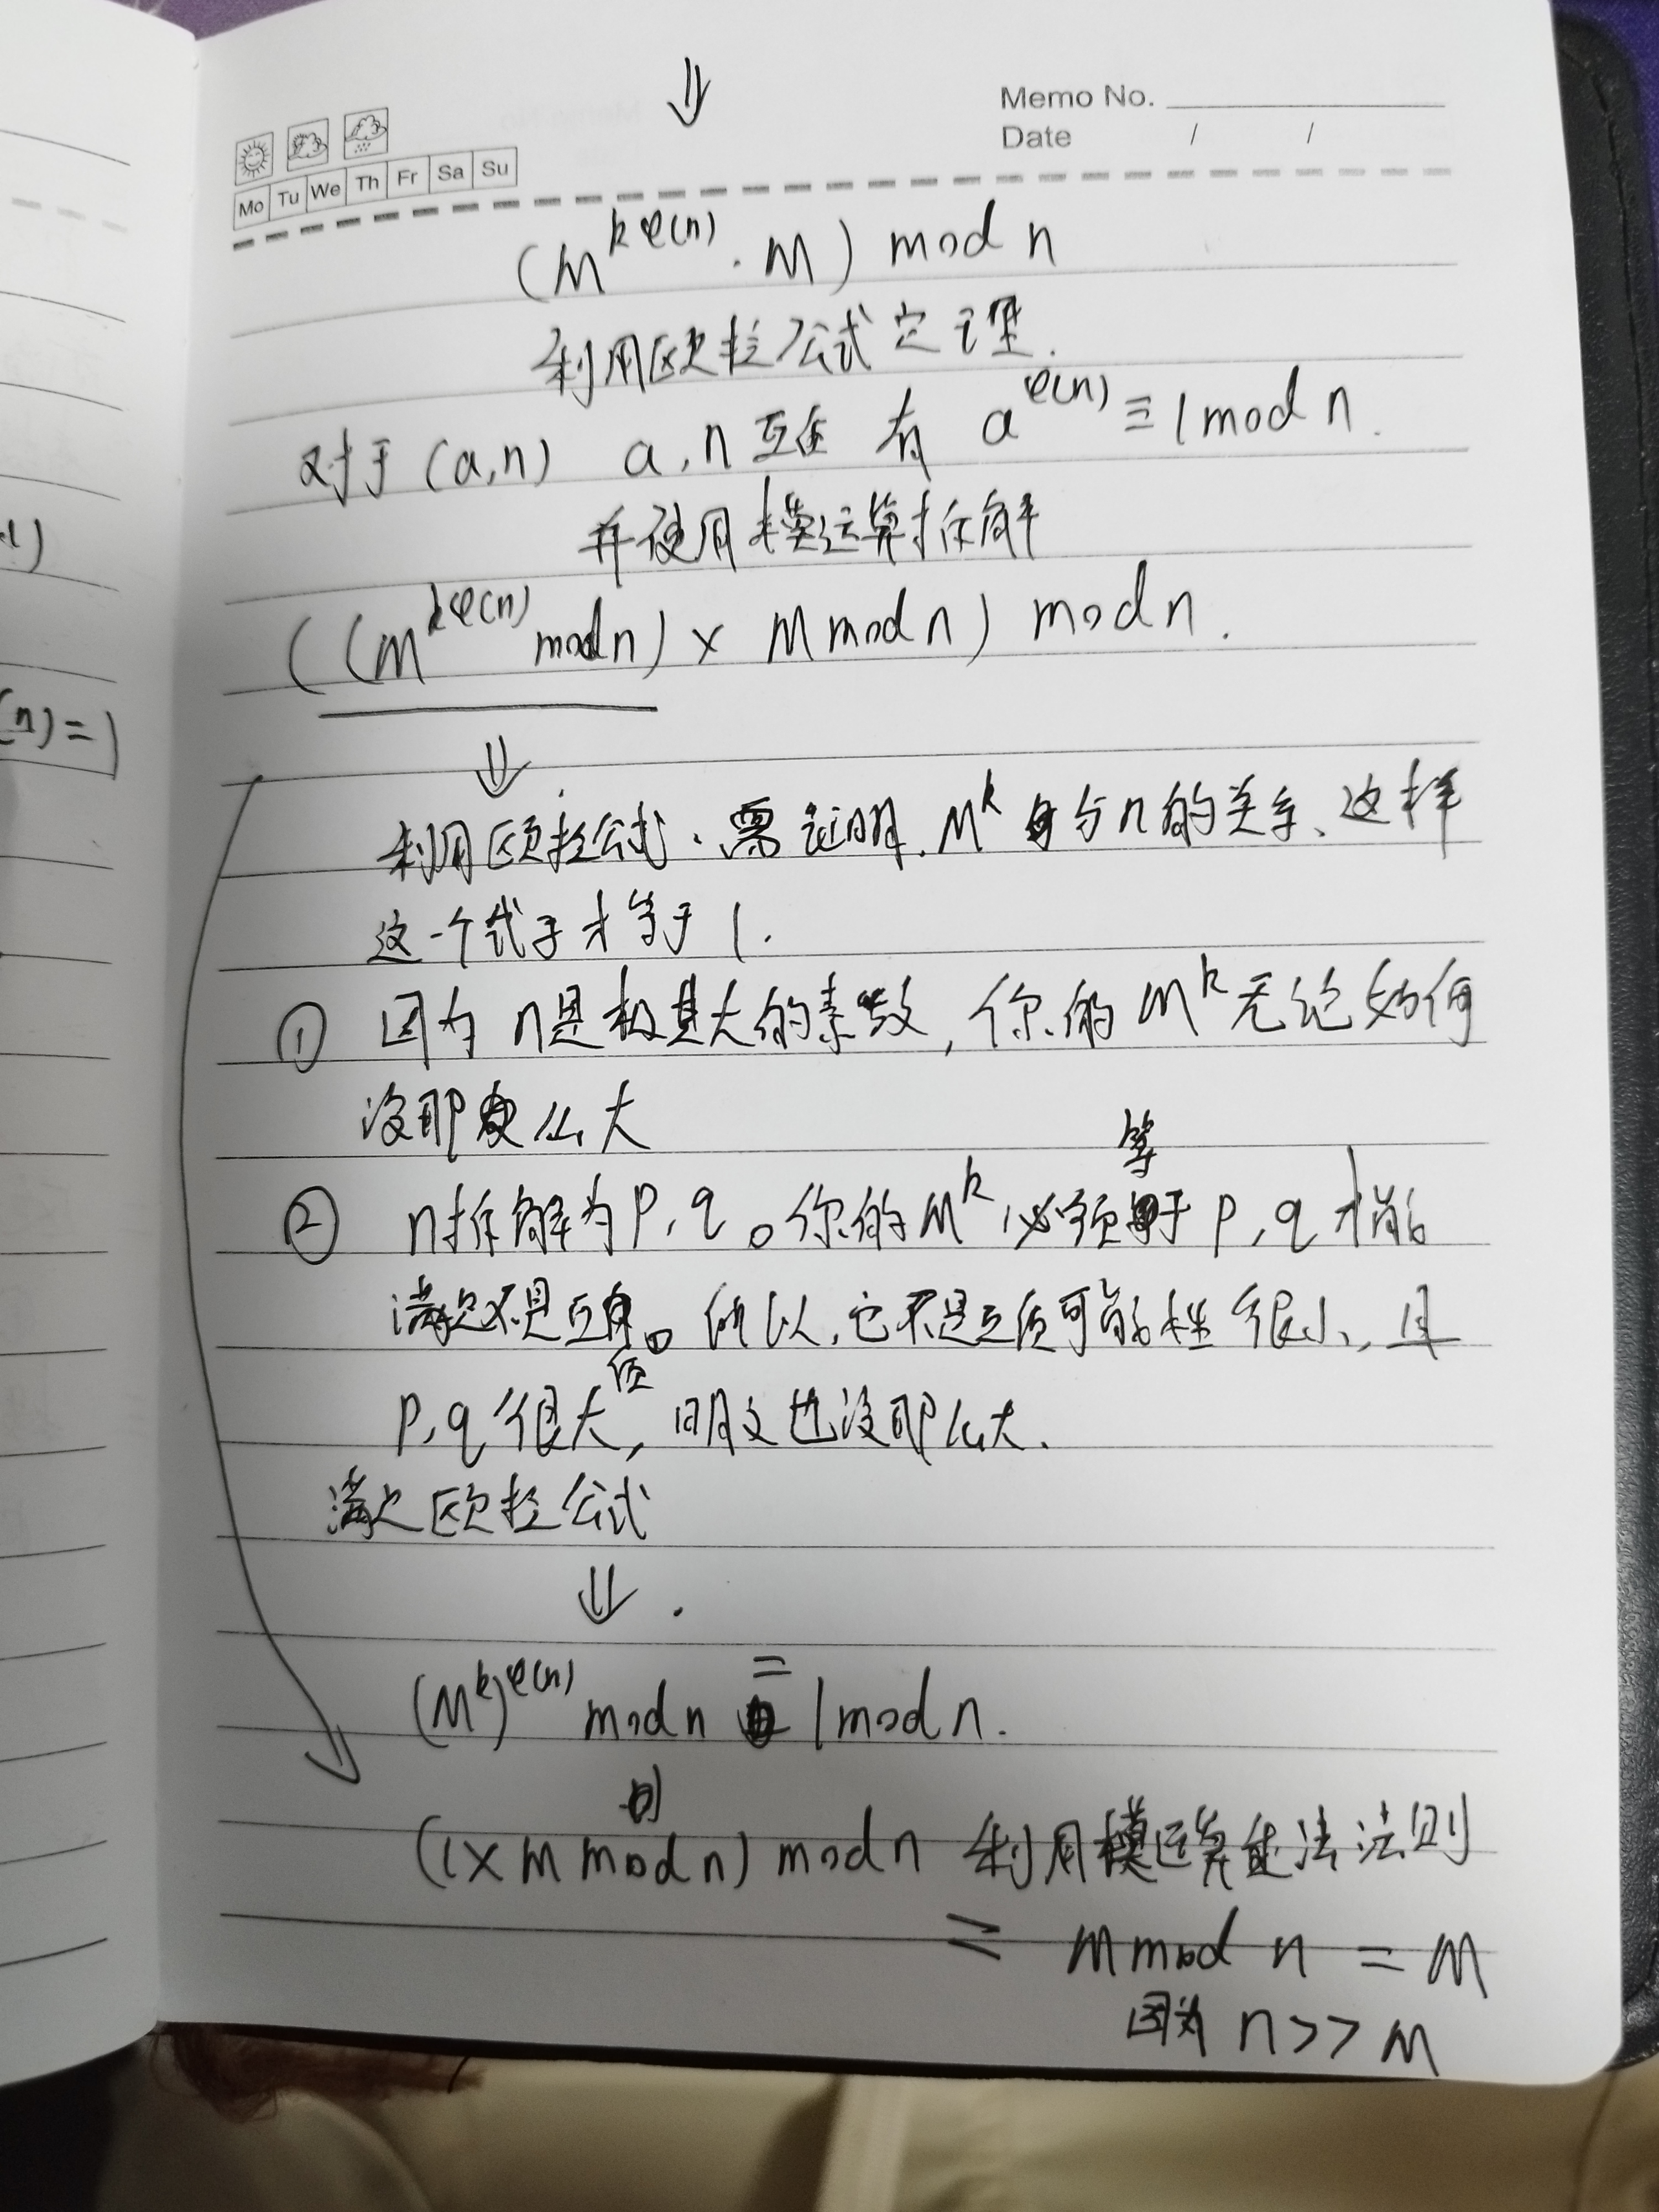 ⇓
Memo No.
Date / /
Mo Tu We Th Fr Sa Su
(M^{kφ(n)} · M) mod n
利用欧拉公式定理.
对于(a,n) a,n互质 有 a^{φ(n)} ≡ 1 mod n.
并使用模运算拆解
((M^{kφ(n)} mod n) × M mod n) mod n.
⇓
利用欧拉公式.需证明.M^k 与n的关系、这样
这一个式子才等于1.
① 因为n是极其大的素数,你的M^k无论如何
没那么大
② n拆解为P,q。你的M^k必须等于P,q才能
满足不是互质。所以,它不是互质可能性很小,且
P,q很大,明文也没那么大.
满足欧拉公式
⇓
(M^k)^{φ(n)} mod n = 1 mod n.
(1×M mod n) mod n 利用模运算乘法法则
= M mod n = M
因为 n>>M
1)
(n)=1